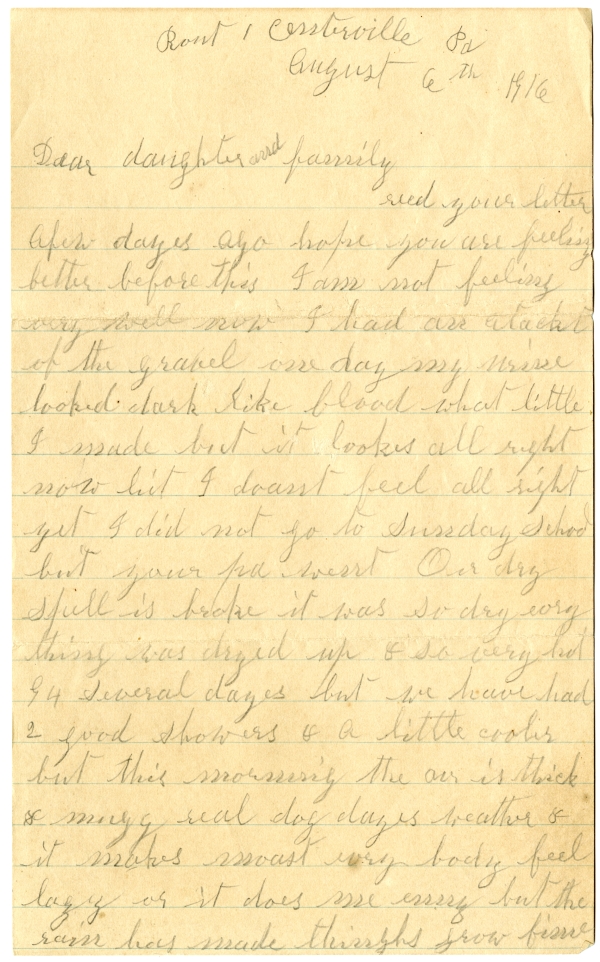 Rout 1 Centerville Pa
August 6th 1916
Dear daughter and family
recd your letter
afew dayes ago hope you are feeling
better before this I am not feeling
very well now I had an atackt
of the gravel one day my urine
looked dark like blood what little
I made but it lookes all right
now but I doant feel all right
yet I did not go to Sunday School
but your pa went Our dry
spell is broke it was so dry evry
thing was dryed up & so very hot
94 several dayes but we have had
2 good showers & a little cooler
but this morning the air is thick
& mugg real dog dayes weather &
it makes moast evry body feel
lazy or it does me enny but the
rain has made thinghs grow fine